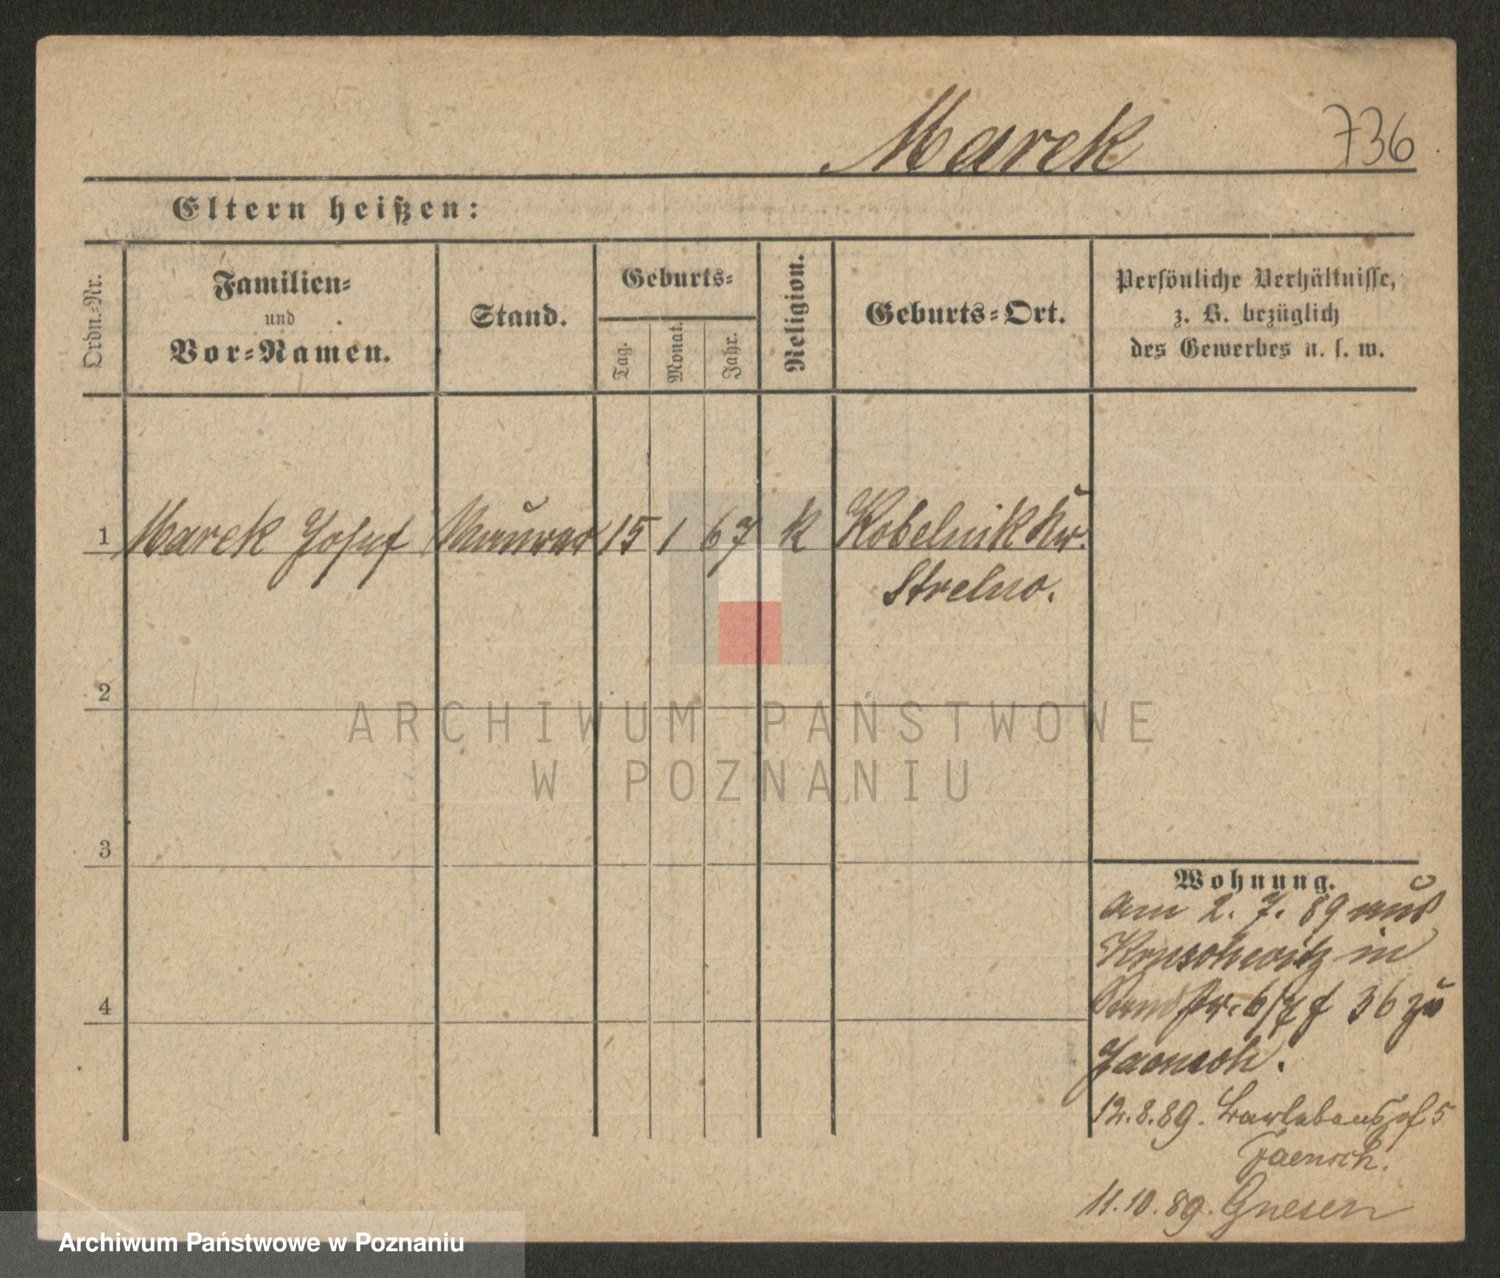 Marek 736
Eltern heißen:
Ordn.-Nr.
Familien-
und
Vor-Namen.
Stand.
Geburts-
Tag.
Monat.
Jahr.
Religion.
Geburts-Ort.
Persönliche Verhältnisse,
z. B. bezüglich
des Gewerbes u. s. w.
1 Marek Josef Maurer 15 1 67 k Kobelnik Kr.
Strelno.
2
ARCHIWUM PAŃSTWOWE
W POZNANIU
3
Wohnung.
Am 2. 7. 89 aus
Kruschwitz in
36 zu
4
Jaensch.
12.8.89. Barlebenshof 5
Jaensch.
11.10.89. Gnesen
Archiwum Państwowe w Poznaniu